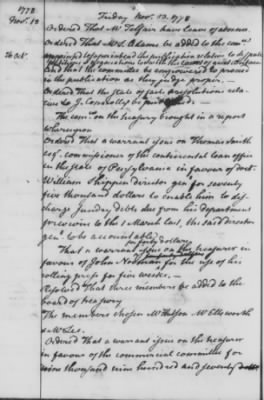 1778
Nov. 13
Friday Nov. 13. 1778
Ordered That Mr Telfair have leave of absence.
Ordered That Mr S. Adams be added to the comee
26 Octr.
and that the committee be empowered to proceed
in the publication as they judge proper.
Ordered that the state of facts & resolutions rela-
tive to J. Connolly be
The comee. on the treasury brought in a report
whereupon
Ordered That a warrant issue on Thomas Smith
esqr. commissioner of the continental loan office
in the state of Pensylvania in favour of doctr.
William Shippen director genl for seventy
five thousand dollars to enable him to dis-
charge sundry debts due from his department
previous to the 1 March last, the said director
genl to be accountable;
for fifty dollars
That a warrant issue on the treasurer in
favour of John Norman for the use of his
rolling press for five weeks. —
Resolved That three members be added to the
board of treasury
The members chosen Mr Hudson Mr Ellsworth
& Mr Lee.
Ordered That a warrant issue on the treasurer
in favour of the commercial committee for
nine thousand nine hundred and seventy